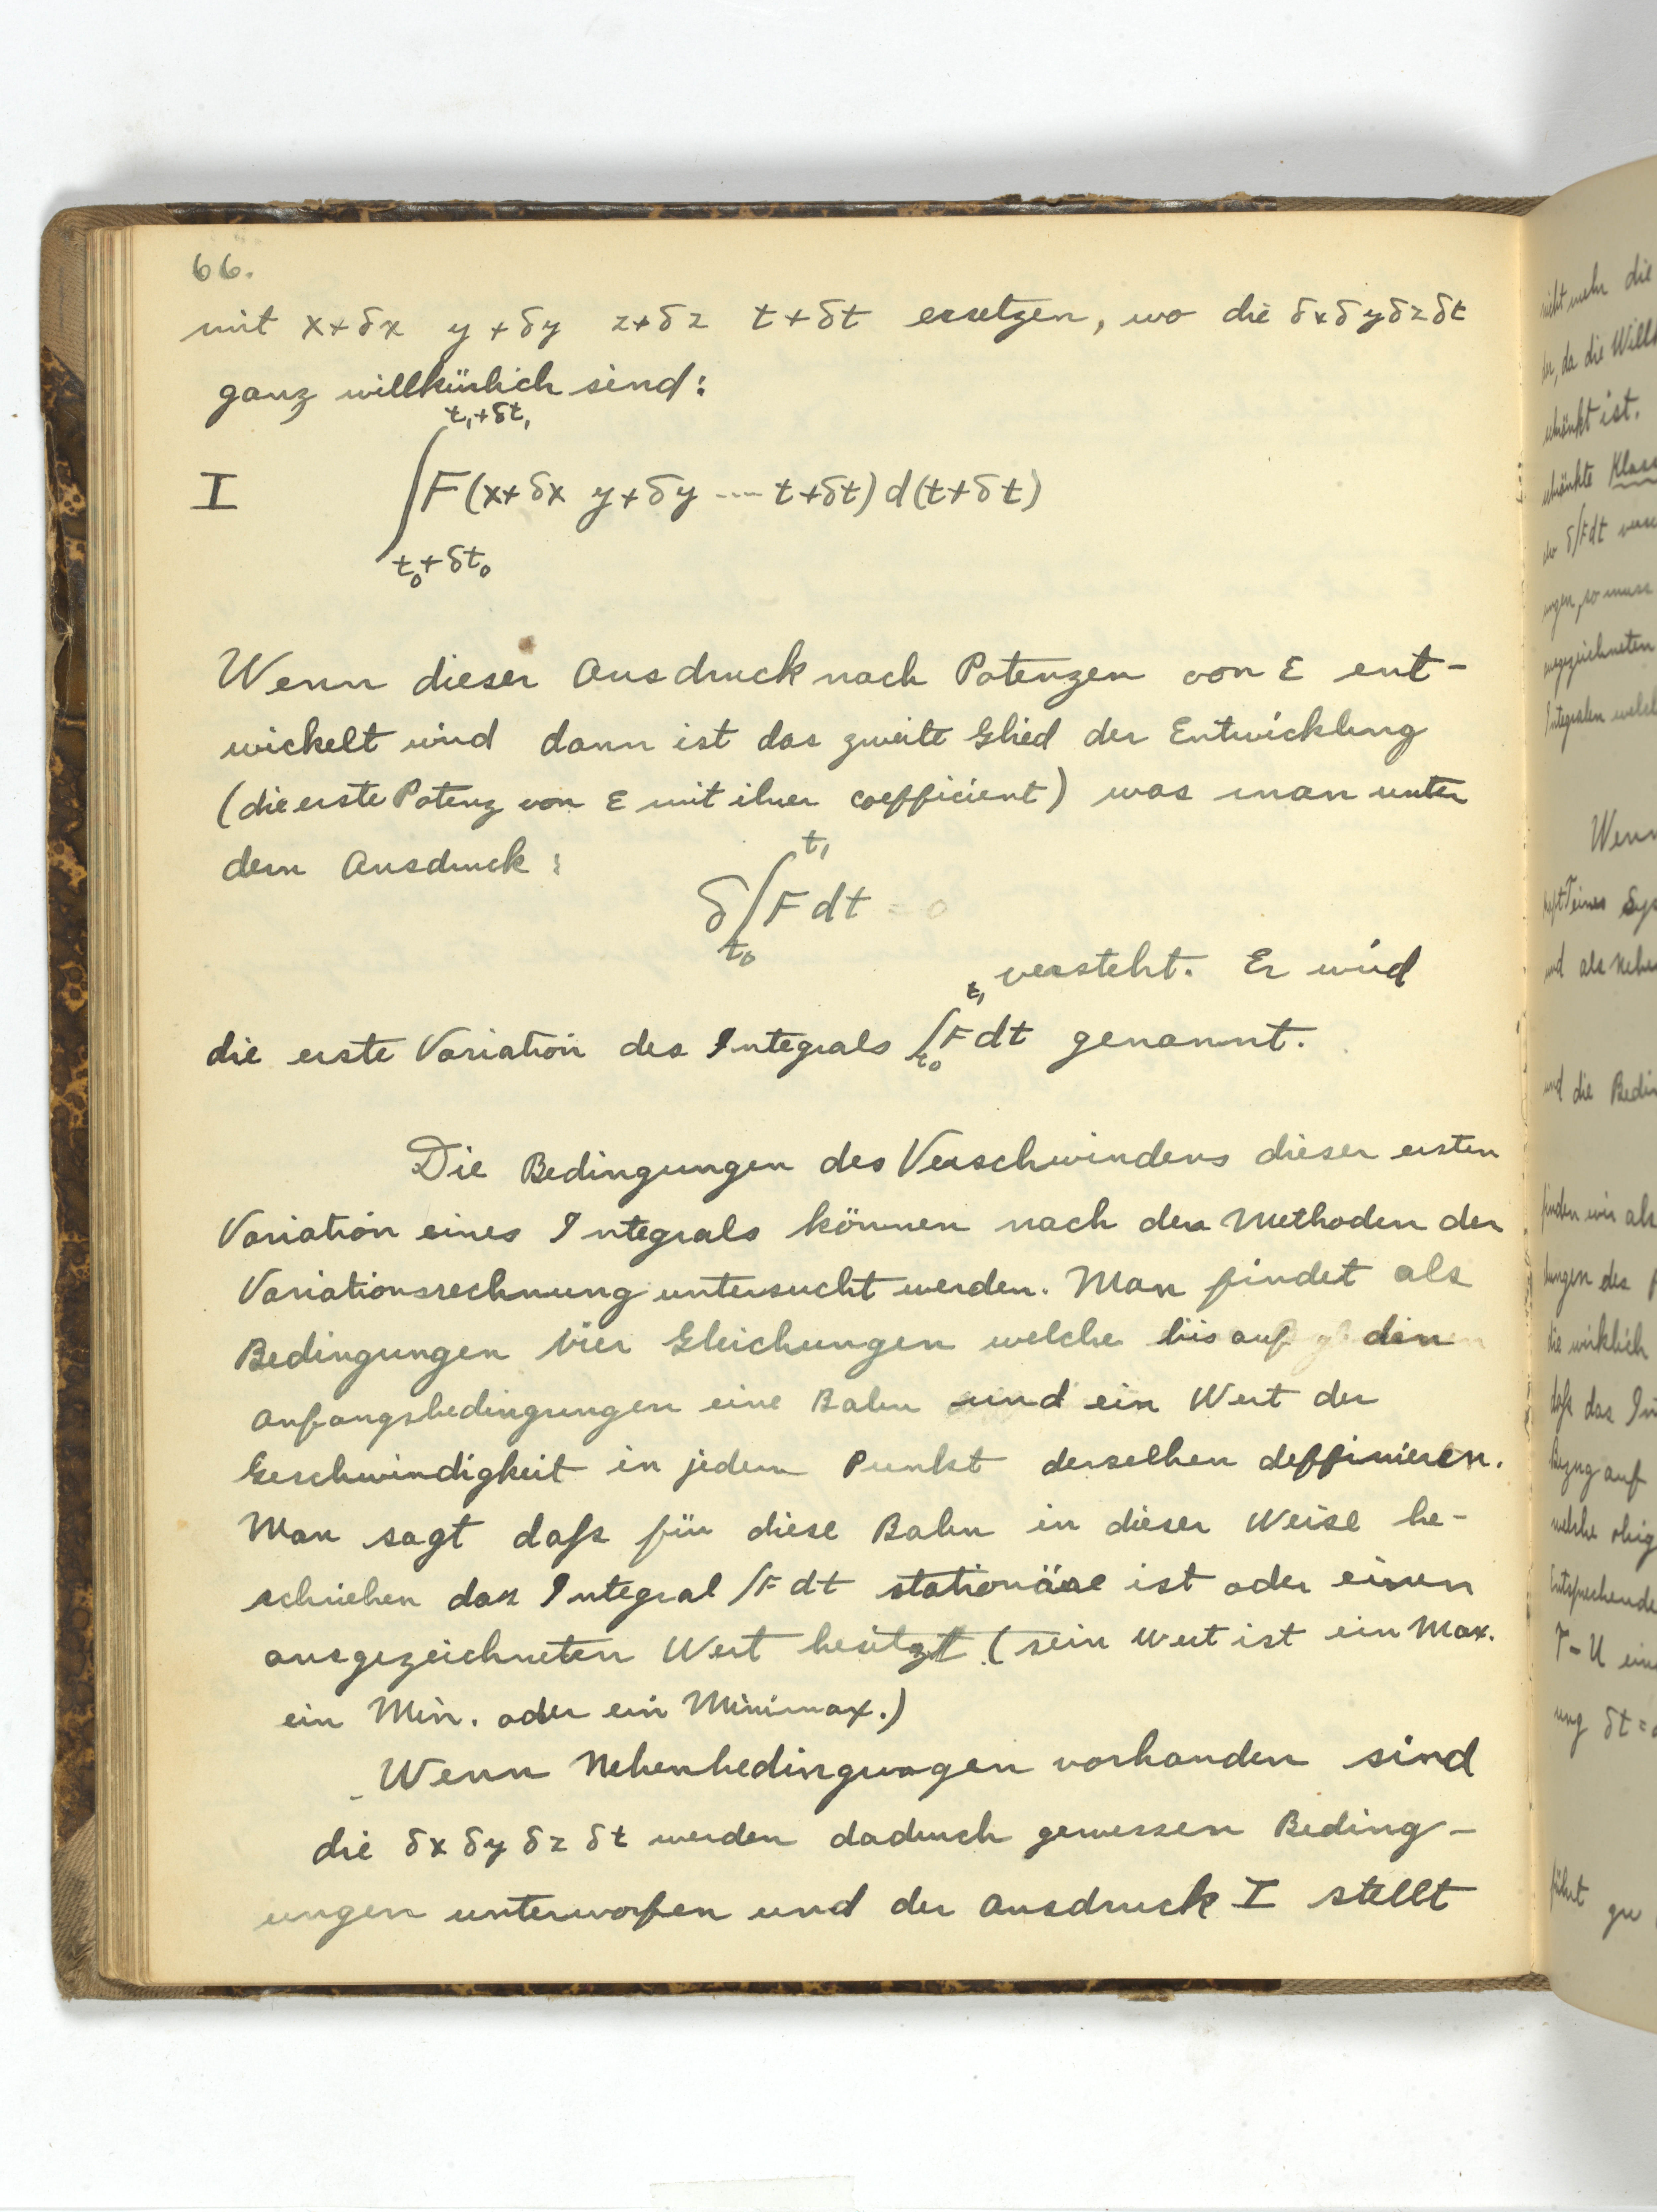 66.
mit x+δx y+δy z+δz t+δt ersetzen, wo die δx δy δz δt
ganz willkürlich sind:
I ∫_{t₀+δt₀}^{t₁+δt₁} F(x+δx y+δy ---- t+δt) d(t+δt)
Wenn dieser Ausdruck nach Potenzen von ε ent-
wickelt wird dann ist das zweite Glied der Entwicklung
(die erste Potenz von ε mit ihrer coefficient) was man unter
dem Ausdruck:
δ∫_{t₀}^{t₁} F dt = 0
versteht. Er wird
die erste Variation des Integrals ∫_{t₀}^{t₁} F dt genannt.
Die Bedingungen des Verschwindens dieser ersten
Variation eines Integrals können nach den Methoden der
Variationsrechnung untersucht werden. Man findet als
Bedingungen vier Gleichungen welche bis auf den
Anfangsbedingungen eine Bahn und ein Wert der
Geschwindigkeit in jedem Punkt derselben deffinieren.
Man sagt daß für diese Bahn in dieser Weise be-
schrieben das Integral ∫F dt stationäre ist oder einen
ausgezeichneten Wert besitzt (sein Wert ist ein Max.
ein Min. oder ein Minimax.)
Wenn Nebenbedingungen vorhanden sind
die δx δy δz δt werden dadurch gewissen Beding-
ungen unterworfen und der Ausdruck I stellt
nicht mehr die
da die
ist.
Klass
δ∫Fdt
so muss
Integralen
Wenn
eines Sys
und als Neben
und die Bedin
finden wir als
die wirklich
daß das In
Bezug auf
welche
T-U
δt=
führt